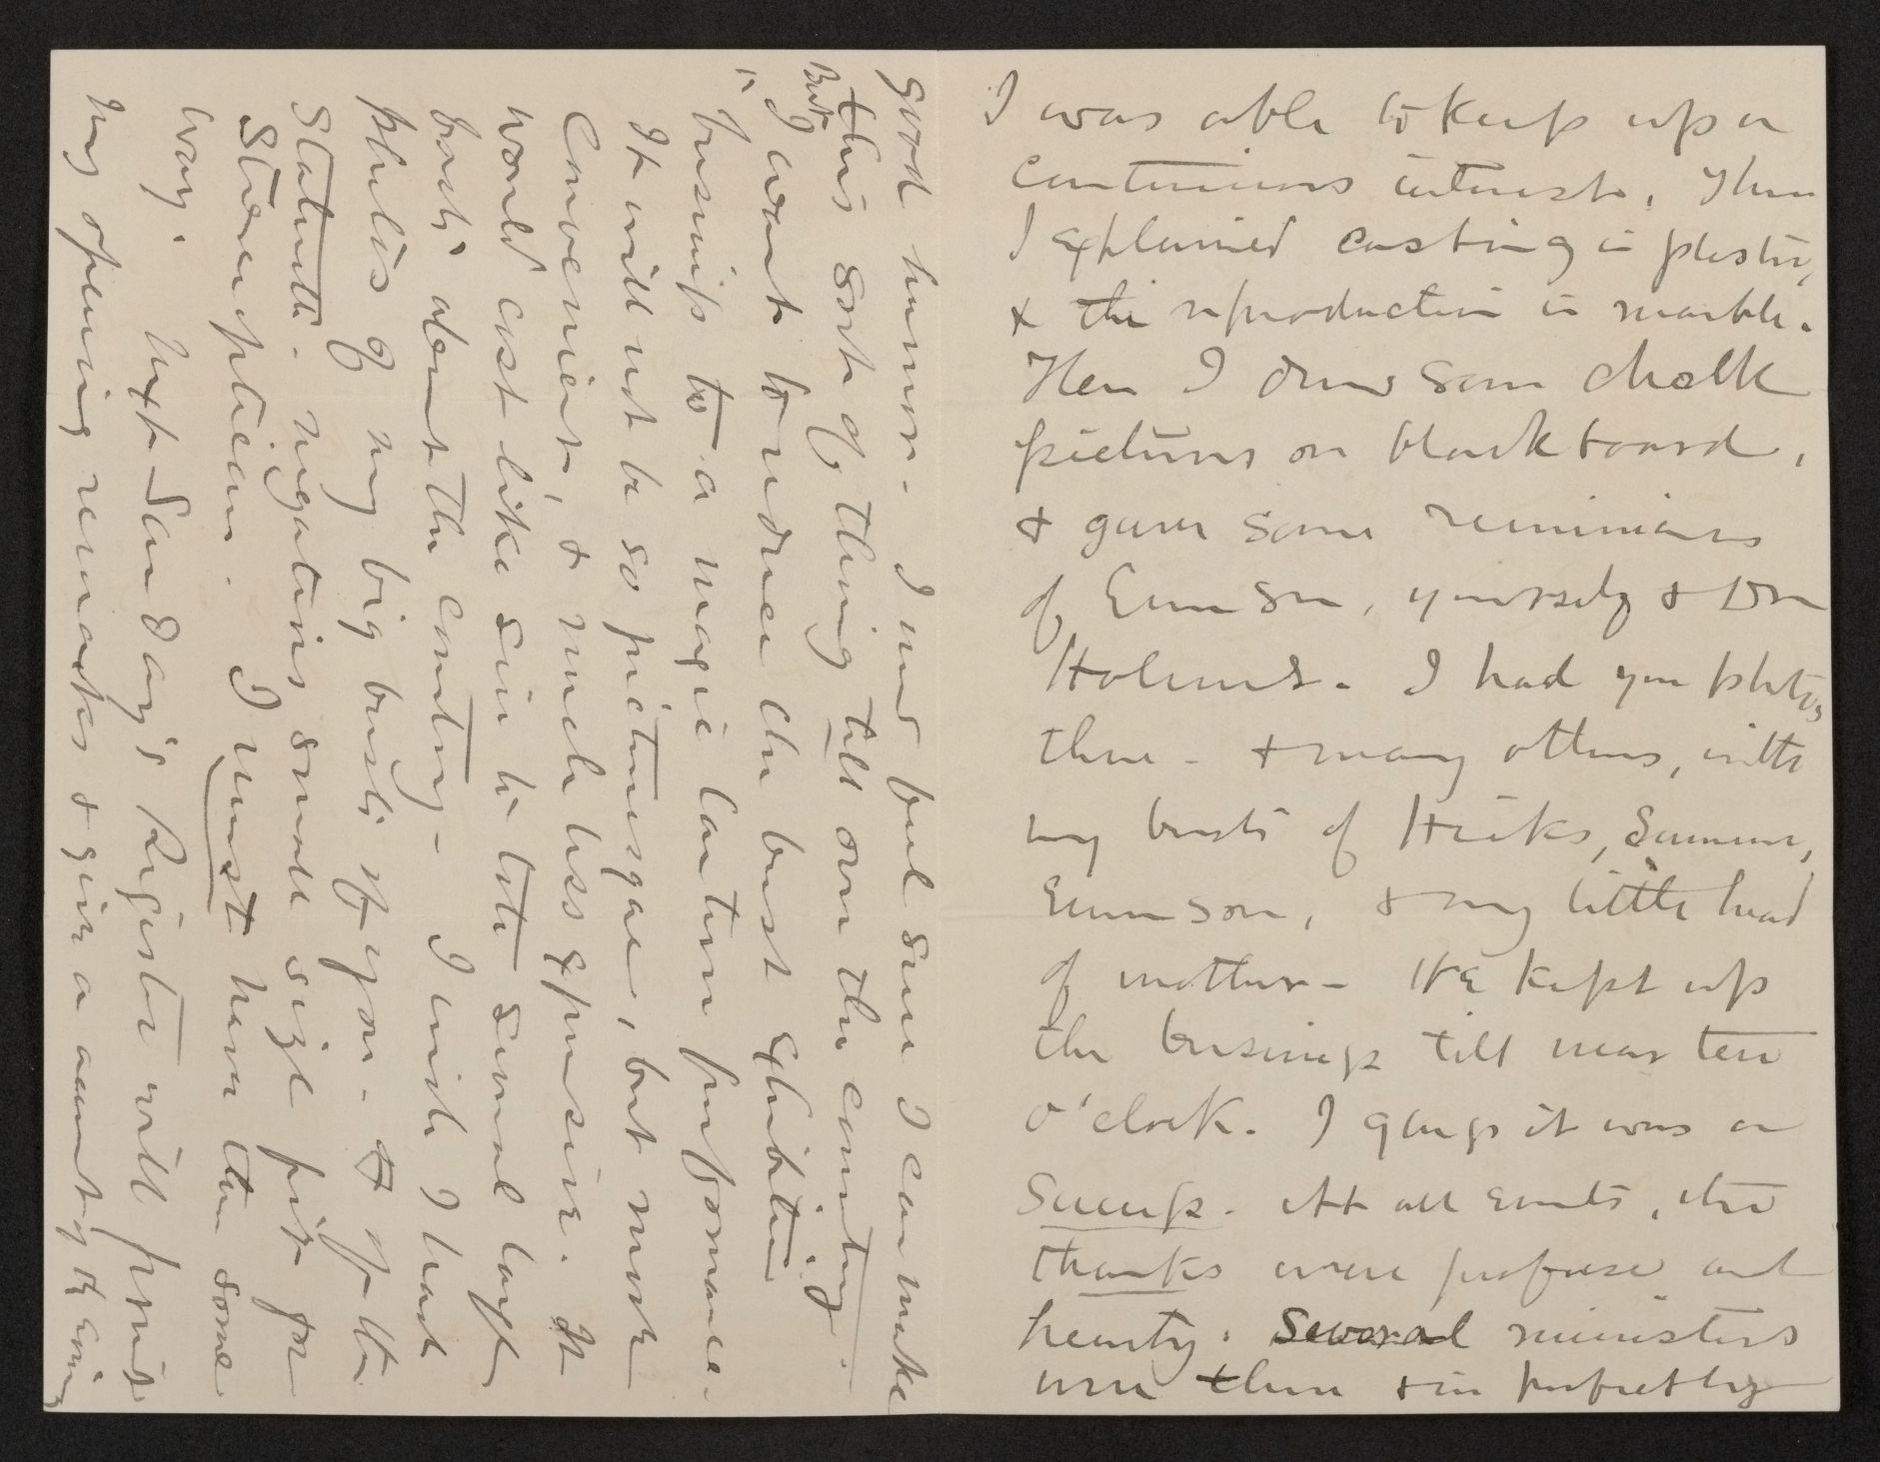 I was able to keep up a
continuous interest. Then
I explained casting in plaster,
& the reproduction in marble.
Then I drew some chalk
pictures on blackboard,
& gave some
of Emerson, yourself & Dr
Holmes. I had your photos
there - & many others, with
my busts of Hicks, Sumner,
Emerson, & my little head
of mother - We kept up
the business till near ten
o'clock. I guess it was a
success. At all events, the
thanks were profuse and
hearty. Several ministers
were there & in perfectly
good humor. I now feel sure I can make
this sort of thing tell over the country.
But I want to reduce the bust exhibition
business to a magic lantern performance.
It will not be so picturesque, but more
convenient, & much less expensive. It
would cost like sin to tote several large
busts about the country - I wish I had
photos of my big busts of you - & of the
statuette - negatives small size fit for
Stereopticon. I must have them some
way.
Next Sunday's Register will print
my opening remarks & give a account of the